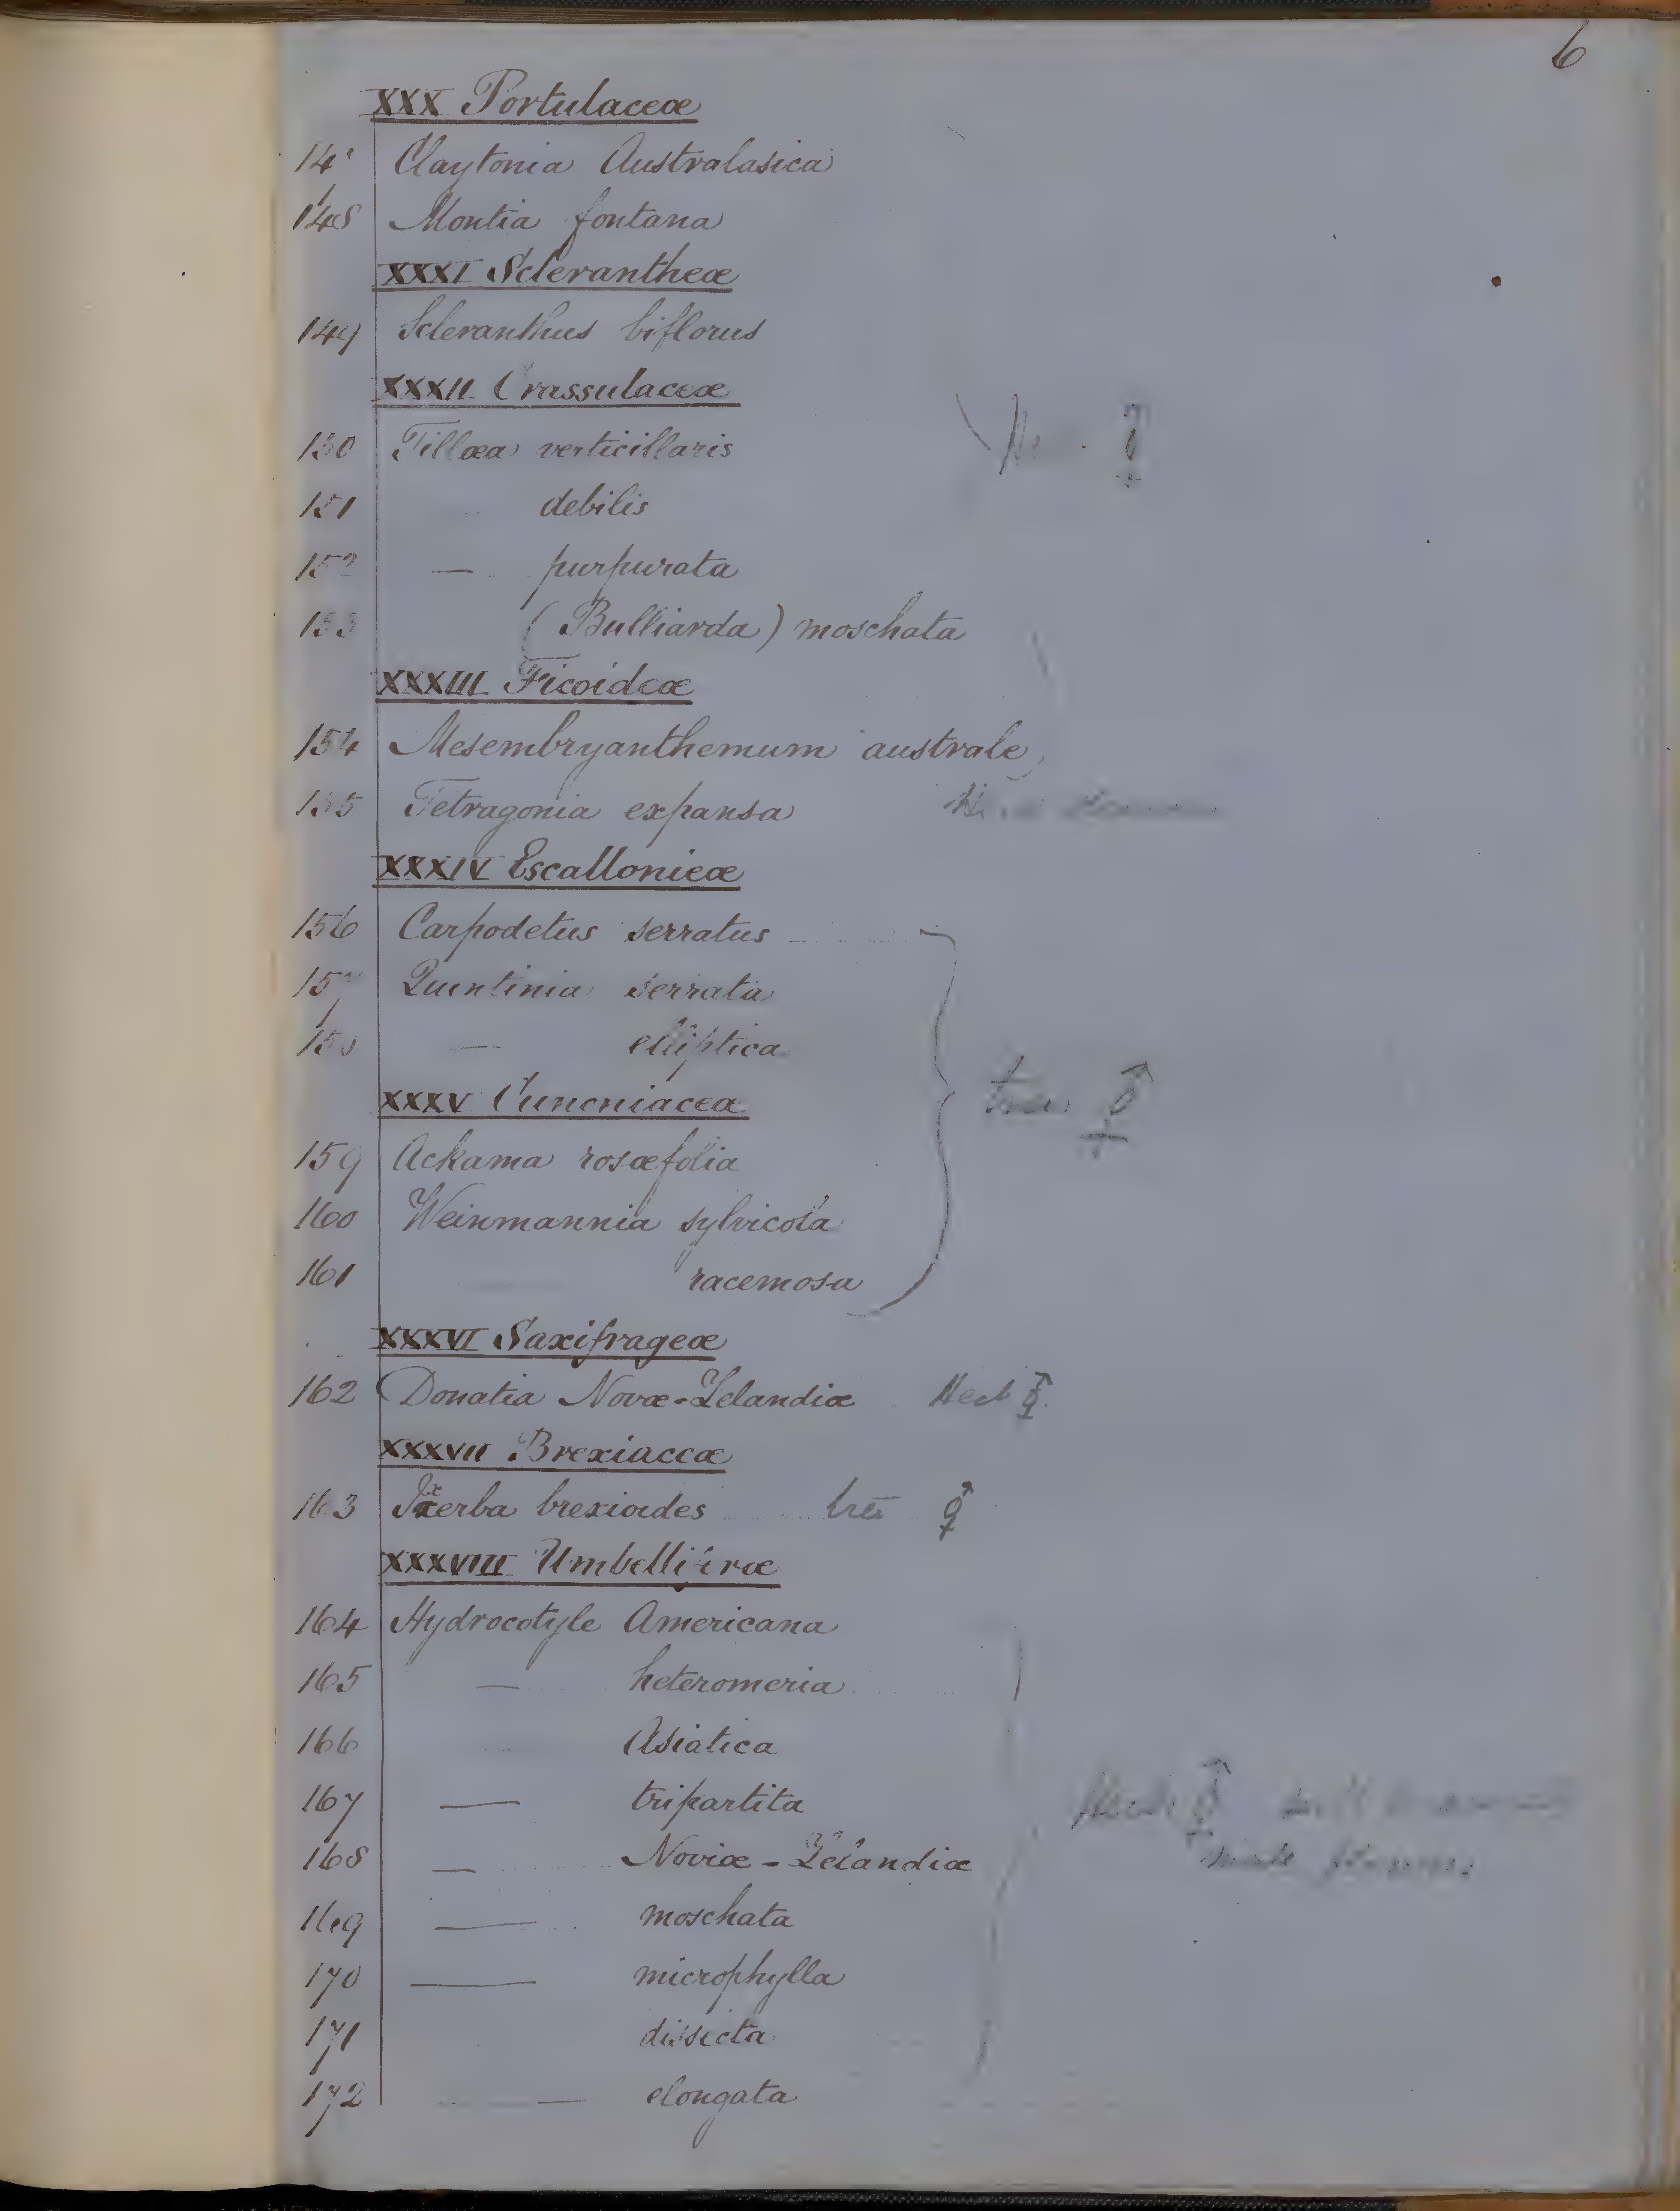 6
XXX Portulaceæ
147 Claytonia Australasica
148 Montia fontana
XXXI Sclerantheæ
149 Scleranthus biflorus
XXXII Crassulaceæ
150 Tillæa verticillaris
151 debilis
152 — purpurata
153 (Bulliarda) moschata
XXXIII Ficoideæ
154 Mesembryanthemum australe
155 Tetragonia expansa
XXXIV Escallonieæ
156 Carpodetus serratus
157 Quintinia serrata
158 — elliptica
XXXV Cunoniaceæ
trees ⚥
159 Ackama rosæfolia
160 Weinmannia sylvicola
161 racemosa
XXXVI Saxifrageæ
162 Donatia Novæ-Zelandiæ Herb ⚥
XXXVII Brexiaceæ
163 Ixerba brexioides tree ⚥
XXXVIII Umbelliferæ
164 Hydrocotyle Americana
165 — heteromeria
166 Asiatica
167 — tripartita Herbs ⚥
168 — Noviæ-Zelandiæ
169 — moschata
170 — microphylla
171 dissecta
172 — elongata